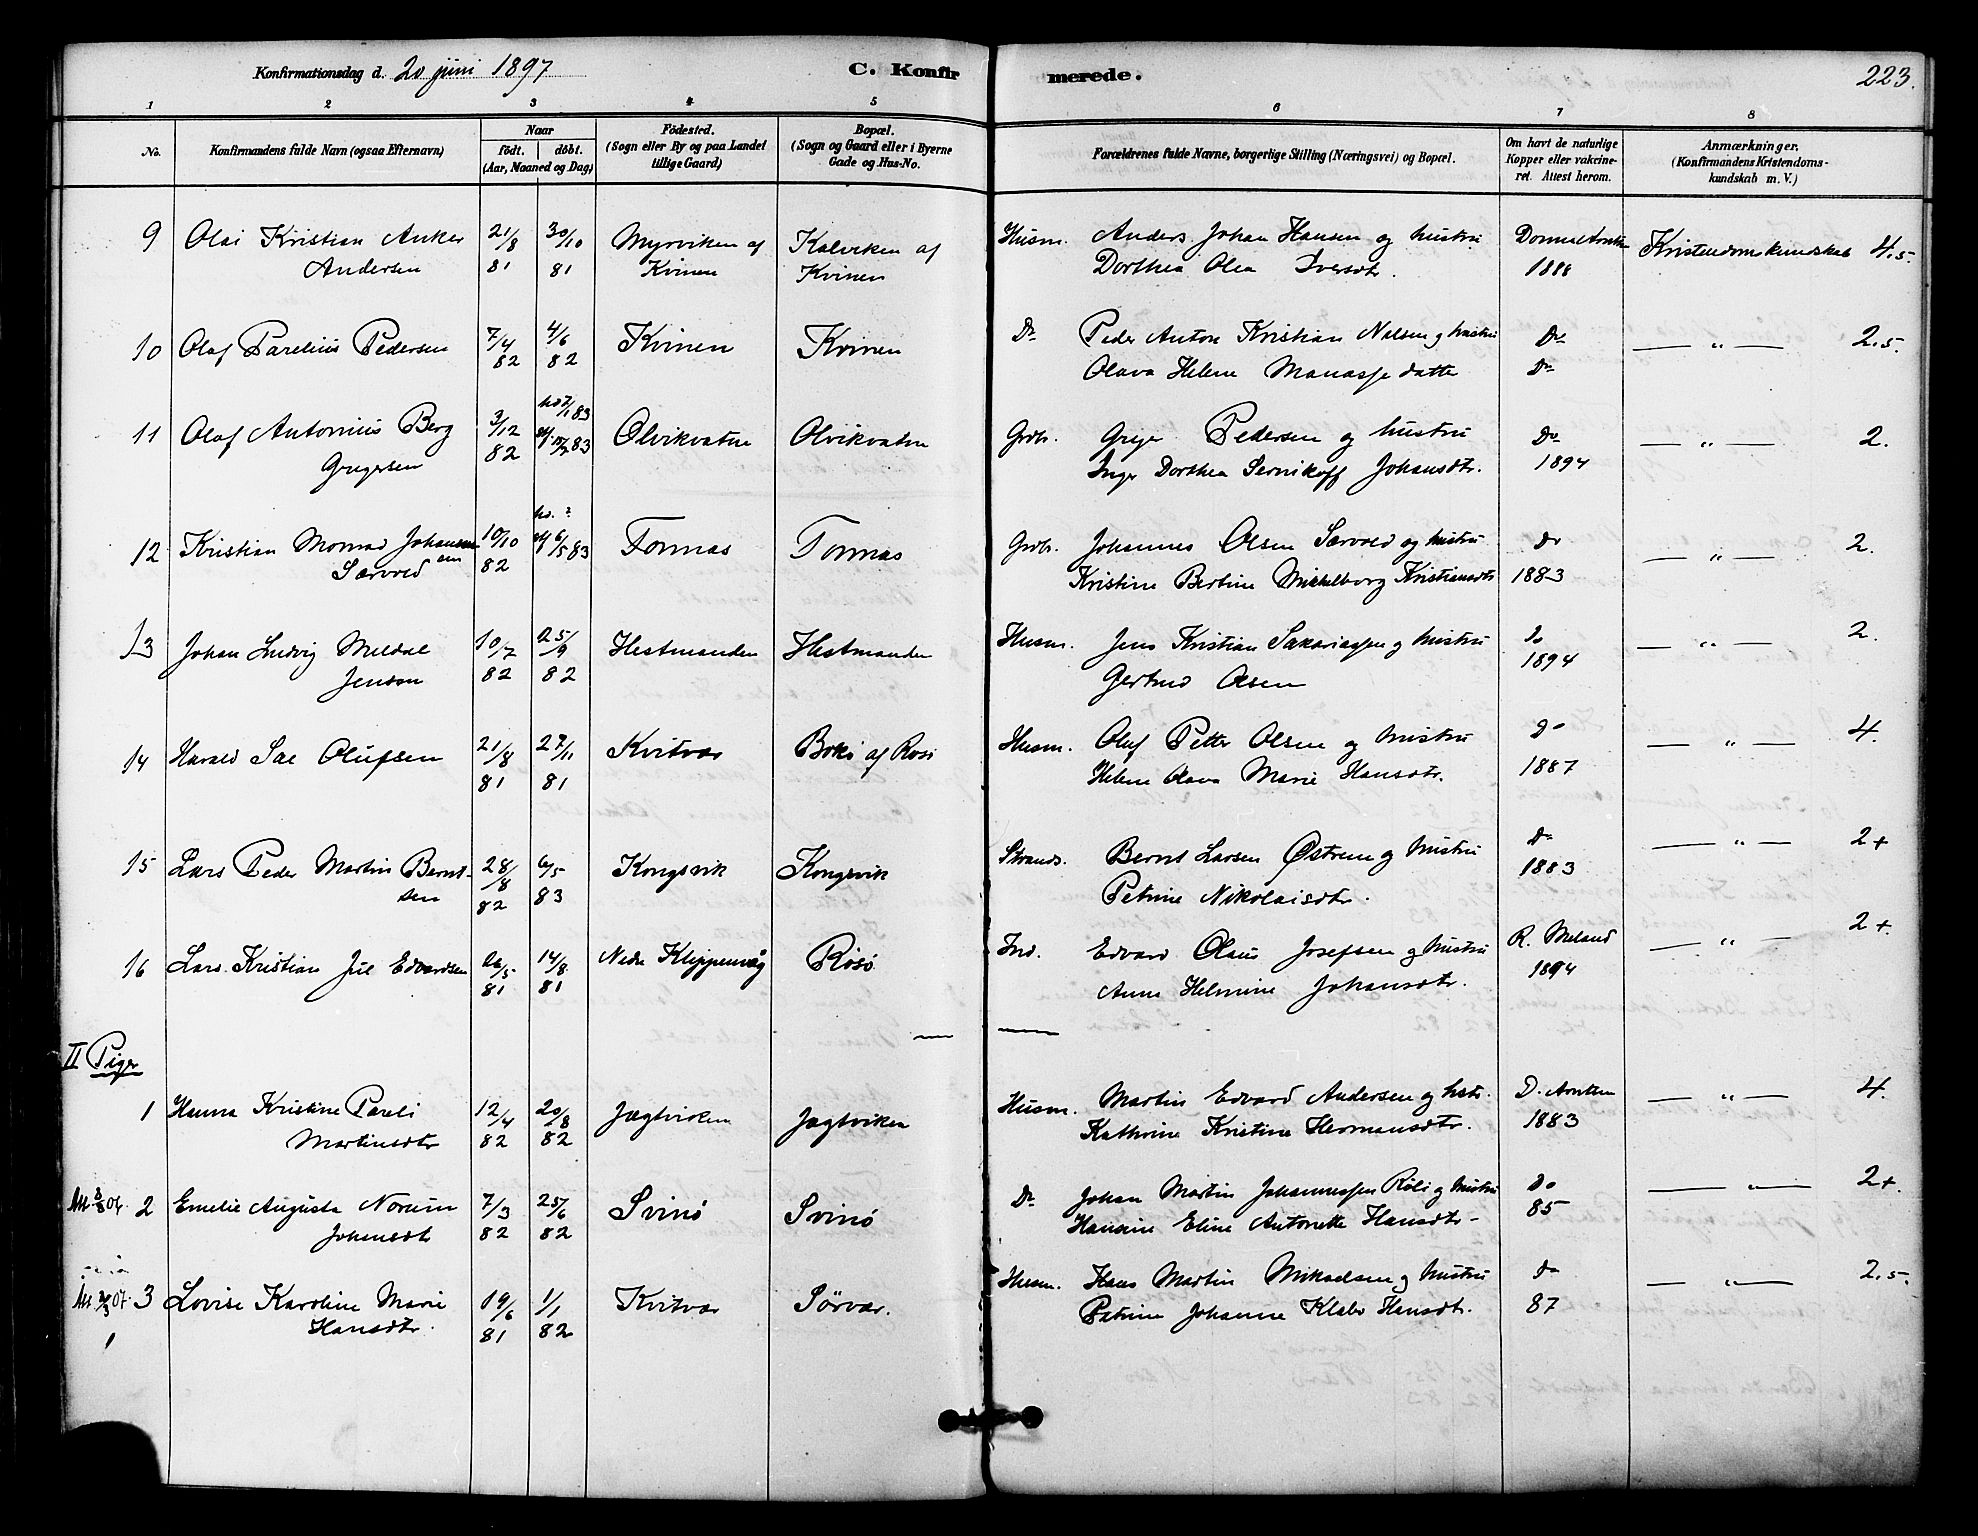 Konfirmationsdag d. 20 juni 1897
C. Konfirmerede.
223.
1 2 3 4 5 6 7 8
No.
Konfirmandens fulde Navn (ogsaa Efternavn)
Naar
födt. döbt.
(Aar, Maaned og Dag)
Födested.
(Sogn eller By og paa Landet
tillige Gaard)
Bopæl.
(Sogn og Gaard eller i Byerne
Gade og Hus-No.
Forældrenes fulde Navne, borgerlige Stilling (Næringsvei) og Bopæl.
Om havt de naturlige
Kopper eller vakcine-
ret. Attest herom.
Anmærkninger.
(Konfirmandens Kristendoms-
kundskab m. V.)
9 Olai Kristian Anker 21/8 30/10 Myrviken af Kalviken af Husm. Anders Johan Hansen og hustru Kristendomskundskab 4.5.
Andersen 81 81 Kvinen Kvinen Dorthea Olea Iversdtr. 1888
10 Olaf Parelius Pedersen 7/4 4/6 Kvinen Kvinen Do Peder Anton Kristian Nelsen og hustru Do — „ — 2.5.
82 82 Olava Helene Manassedatter Do
11 Olaf Antonius Berg 3/12 83 Olvikvatne Olvikvatne Grdb. Griger Pedersen og hustru Do — „ — 2.
Grigersen 82 83 Inger Dorthea Johansdtr. 1894
12 Kristian Monrad Johansen 10/10 6/5 83 Tonnas Tonnas Grdb. Johannes Olsen Særvold og hustru Do — „ — 2.
Særvold 82 Kristine Bertine Mikkelborg Kristiansdtr 1883
13 Johan Ludvig Meldal 10/7 25/9 Hestmanden Hestmanden Husm. Jens Kristian Sakariassen og hustru Do — „ — 2.
Jensen 82 82 Gertrud Olsen 1894
14 Harald Olufsen 21/8 27/11 Kvitvær af Husm. Oluf Petter Olsen og hustru Do — „ — 4.
81 81 Helene Olava Marie Hansdtr. 1887
15 Lars Peder Martin Bernt- 28/8 6/5 Kongsvik Kongsvik Strands. Bernt Larsen Østrem og hustru Do — „ — 2+
sen 82 83 Petrine Nikolaisdtr. 1883
16 Lars Kristian Jul Edvardsen 26/5 14/8 Nedre Klippenvåg Rösö Ind. Edvard Olaus Josefsen og hustru R. Meland — „ — 2+.
81 81 Anne Helmine Johansdtr. 1894
II Piger
1 Hanna Kristine Pareli 12/4 20/8 Jægtviken Jægtviken Husm. Martin Edvard Andersen og hstr. — „ — 4.
Martinsdtr 82 82 Kathrine Kristine Hermansdtr. 1883
2 Emelie Augusta Norum 7/3 25/6 Svinö Svinö Do Johan Martin Johannessen Röli og hustru Do — „ — 2+.
Johansdtr 82 82 Hansine Eline Antonette Hansdtr. 85
07. 3 Lovise Karoline Marie 19/6 1/1 Kvitvær Sörvær. Husm. Hans Martin Mikaelsen og hustru Do — „ — 2.5.
Hansdtr. 81 82 Petrine Johanne Klabo Hansdtr. 87